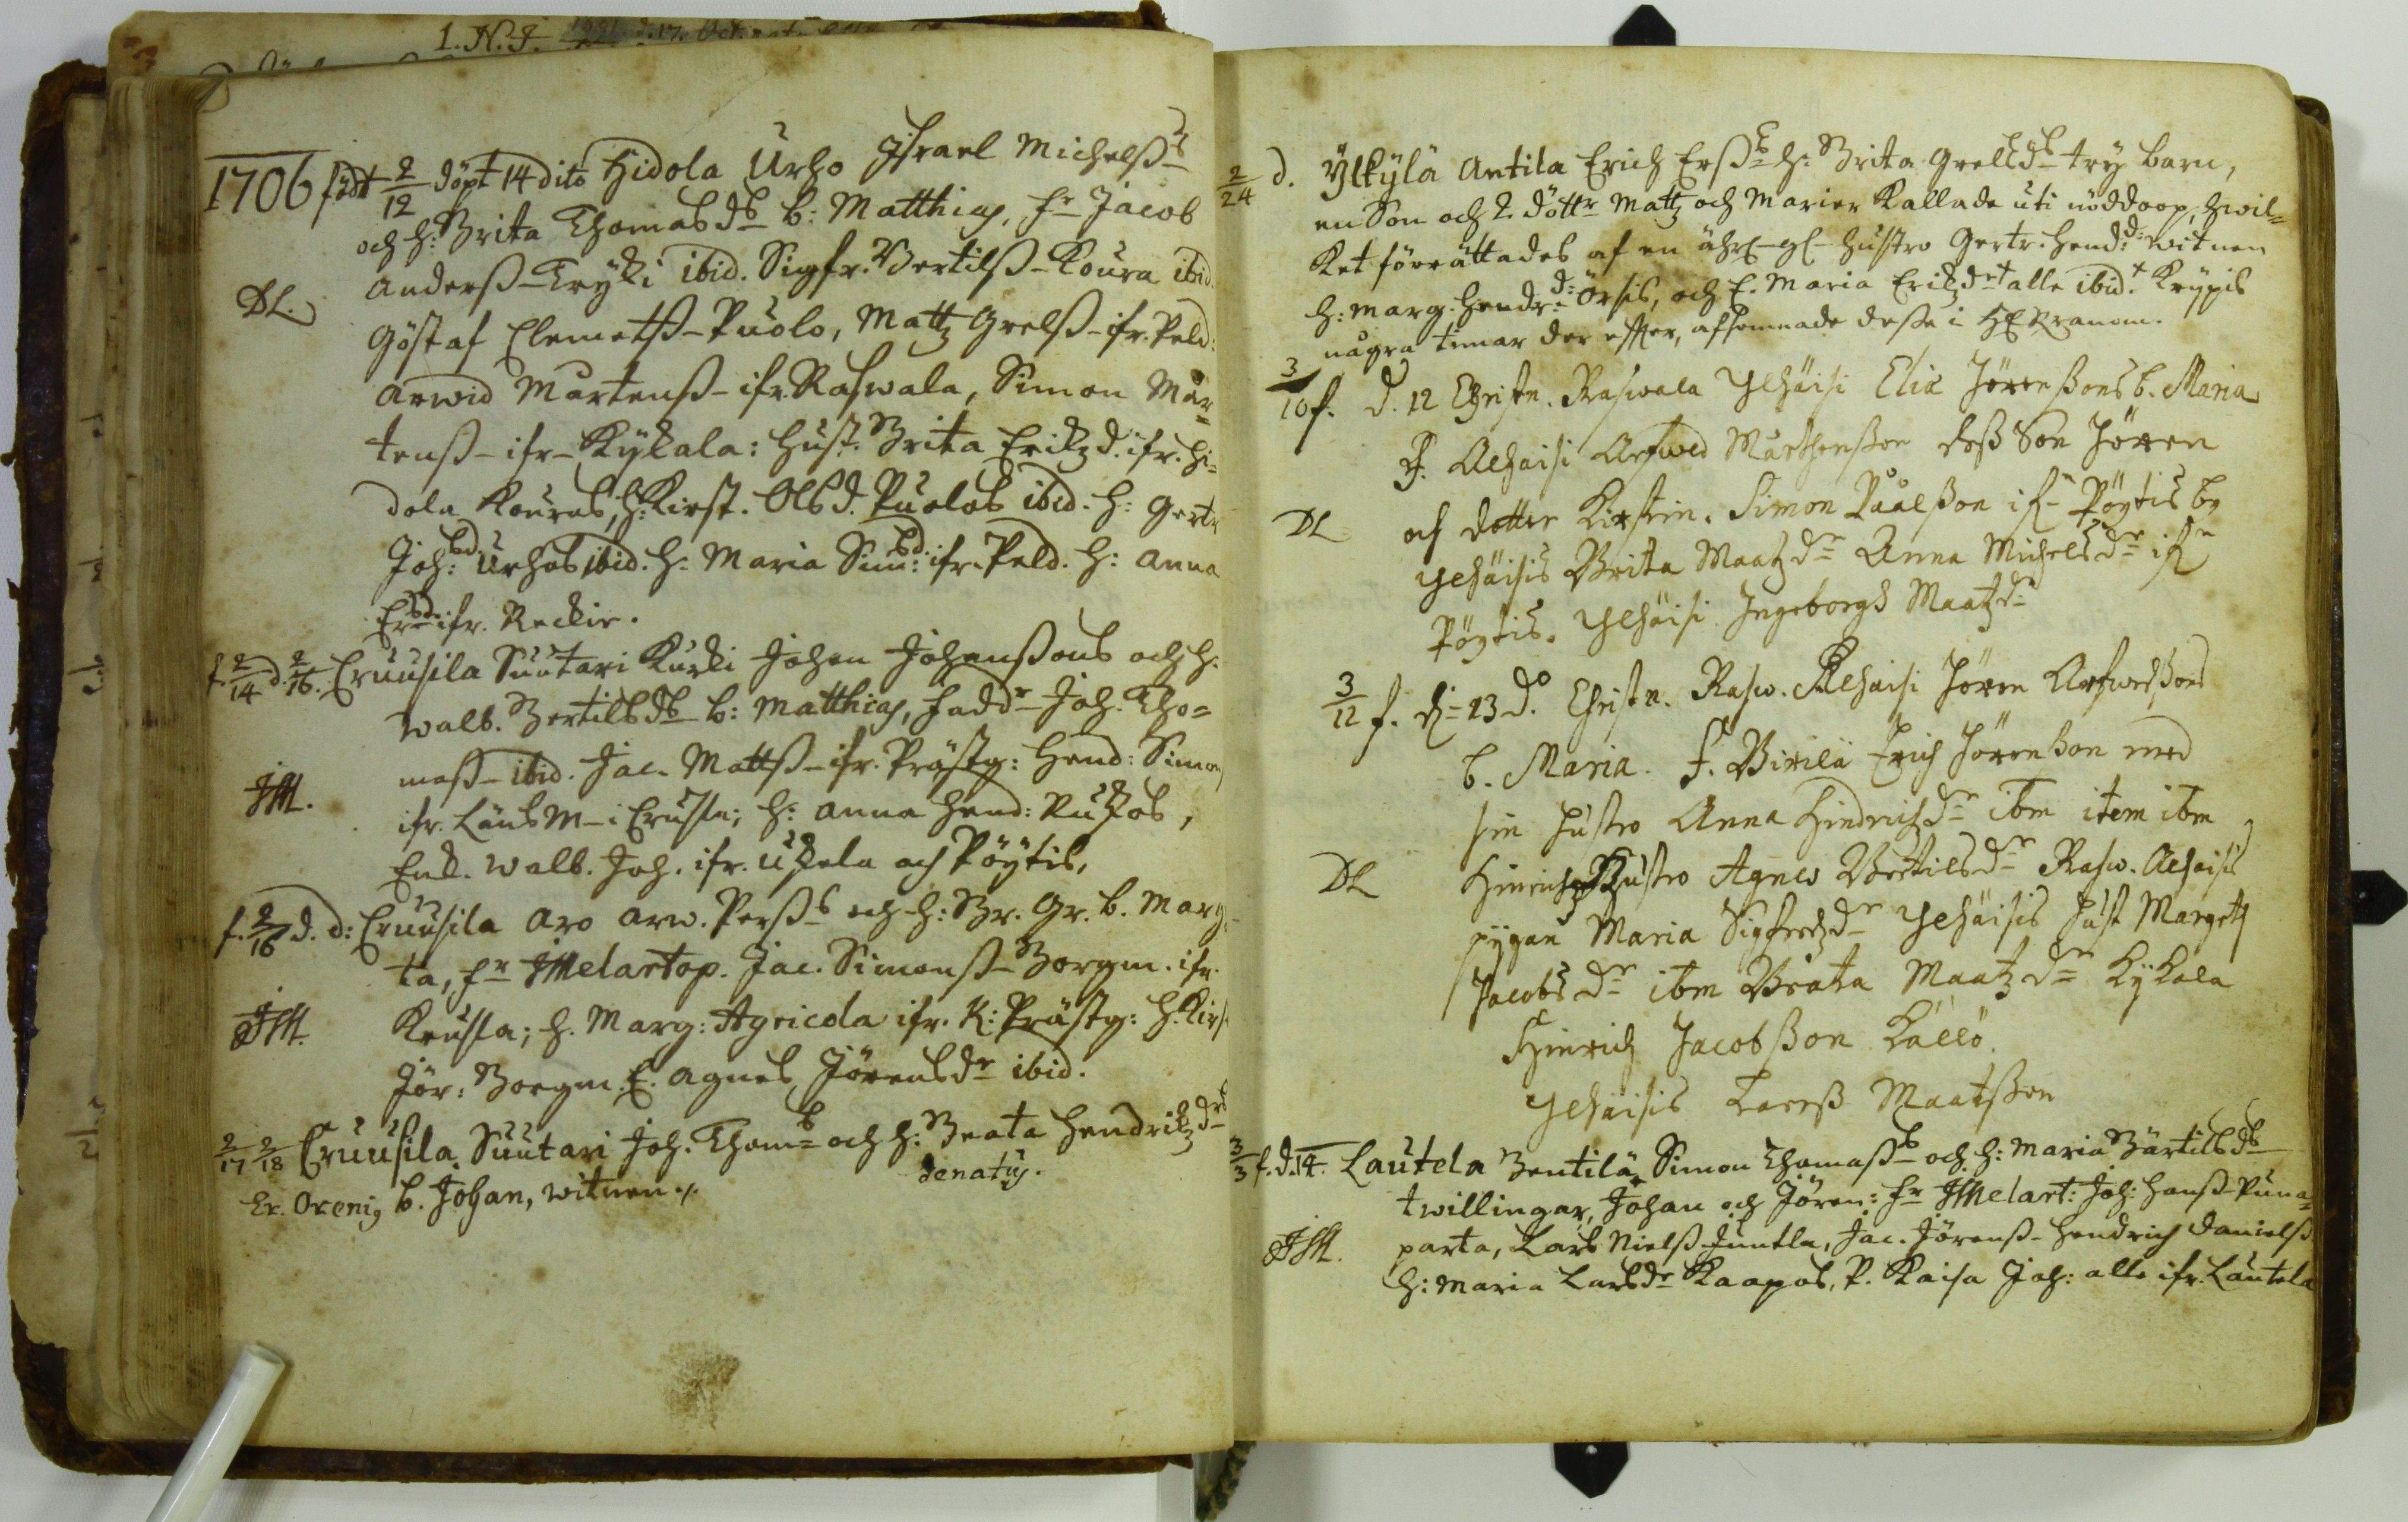 1. N. J.
1706 född 2/12 döpt 14 dito Hidola Urho Israel Michelß
och h: Brita Thomas ds b: Matthias, fr Jacob
Anderß Kryki ibid. Sigfr. Bertilß Koura ibid.
DL.
Göstaf Clemetß Puolo, Mattz Grelß ifr. Peld:
Arwid Mårtenß ifr. Raswala, Simon Mår=
tenß ifr Kykala: Hust. Brita Erikzd. ifr. Hi=
dola Kouras, h: Kirst. Ols d. Puolos ibid. h: Gertr
Joh: sd. Urhos ibid. h: Maria Sim: sd. ifr. Peld. h: Anna
Er sd. ifr. Reckis.
f. 2/14 d. 2/16. Cruusila Suutari Kurki Johan Johanßons och h:
Walb. Bertils ds b: Matthias, fadd r Joh. Tho=
maß ibid. Jac. Mattß ifr. Prästg: Hend: Simon
JM.
ifr. Läns M i Crusla; h: Anna Hend:
Walb. Joh. ifr. och Pöytis,
f. 2/16 d. d: Cruusila Aro Arw. Perß s och h: Br. Gr. b. Marg=
ta, fr JMelartop. Jac. Simonß Borgm. ifr.
JM.
Krusla; h. Marg: Agricola ifr. K: Prästg: h. Kirs
Jör: Borgm. Agnes Jörens dr ibid.
2/17 2/18 Cruusila Suutari Joh. Thom s och h: Beata Hendrikz drs
Er. Orenig b. Johan, witnen ./. denatus.
2/24 d. Ylkylä Antila Erich Erß s h: Brita Grels ds try barn,
en Son och 2 döttr Mattz och Marier kallade uti nöddoop, hwil=
ket förrättades af en ährl gl hustro Gertr. Hend: d: witnen
h: Marg. Hendr d: Örsis, och Maria Erikz dr alle ibid. Krypis
några timar der effter, afsomnade desse i HERranom.
3/10 f. d. 12 Christn. Raswala Ylhäisi Elix Jörenßons b. Maria
F. Alhaisi Arfwed Mårthenßon deß Son Jören
DL
och dotter Kirstin. Simon Påålßon if Pöytis by
Ylhäisis Brita Maatz dr Anna Michels dr ifr
Pöytis. Ylhäisi Ingeborgh Maatz dr
3/12 f. d 13 do Christn. Rasw. Alhaisi Jören Arfwedßons
b. Maria. F. Birilä Erich Jörenßon med
sin hustro Anna Hindrichz dr ibm item ibm
DL
Hinrichz hustro Agnes Bertils dr Rasw. Alhaisis
pygan Maria Sigfredz dr Ylhäisis hust Margeth
Jacobs dr ibm Beata Maatz dr Kykala
Hinrich Jacobßon Källö.
Ylhäisis Larß Maatßon
3/3 f. d. 14. Lautela Bentilä Simon Thomaß s och h: Maria Bärtils ds
twillingar, Johan och Jören: fr JMelart: Joh: Hanß Puna=
JM.
parta, Lars Nielß Juntla, Jac. Jörenß Hendrich Danielß
h: Maria Lars dr Kaapos, P. Kaisa Joh: alle ifr. Lautela